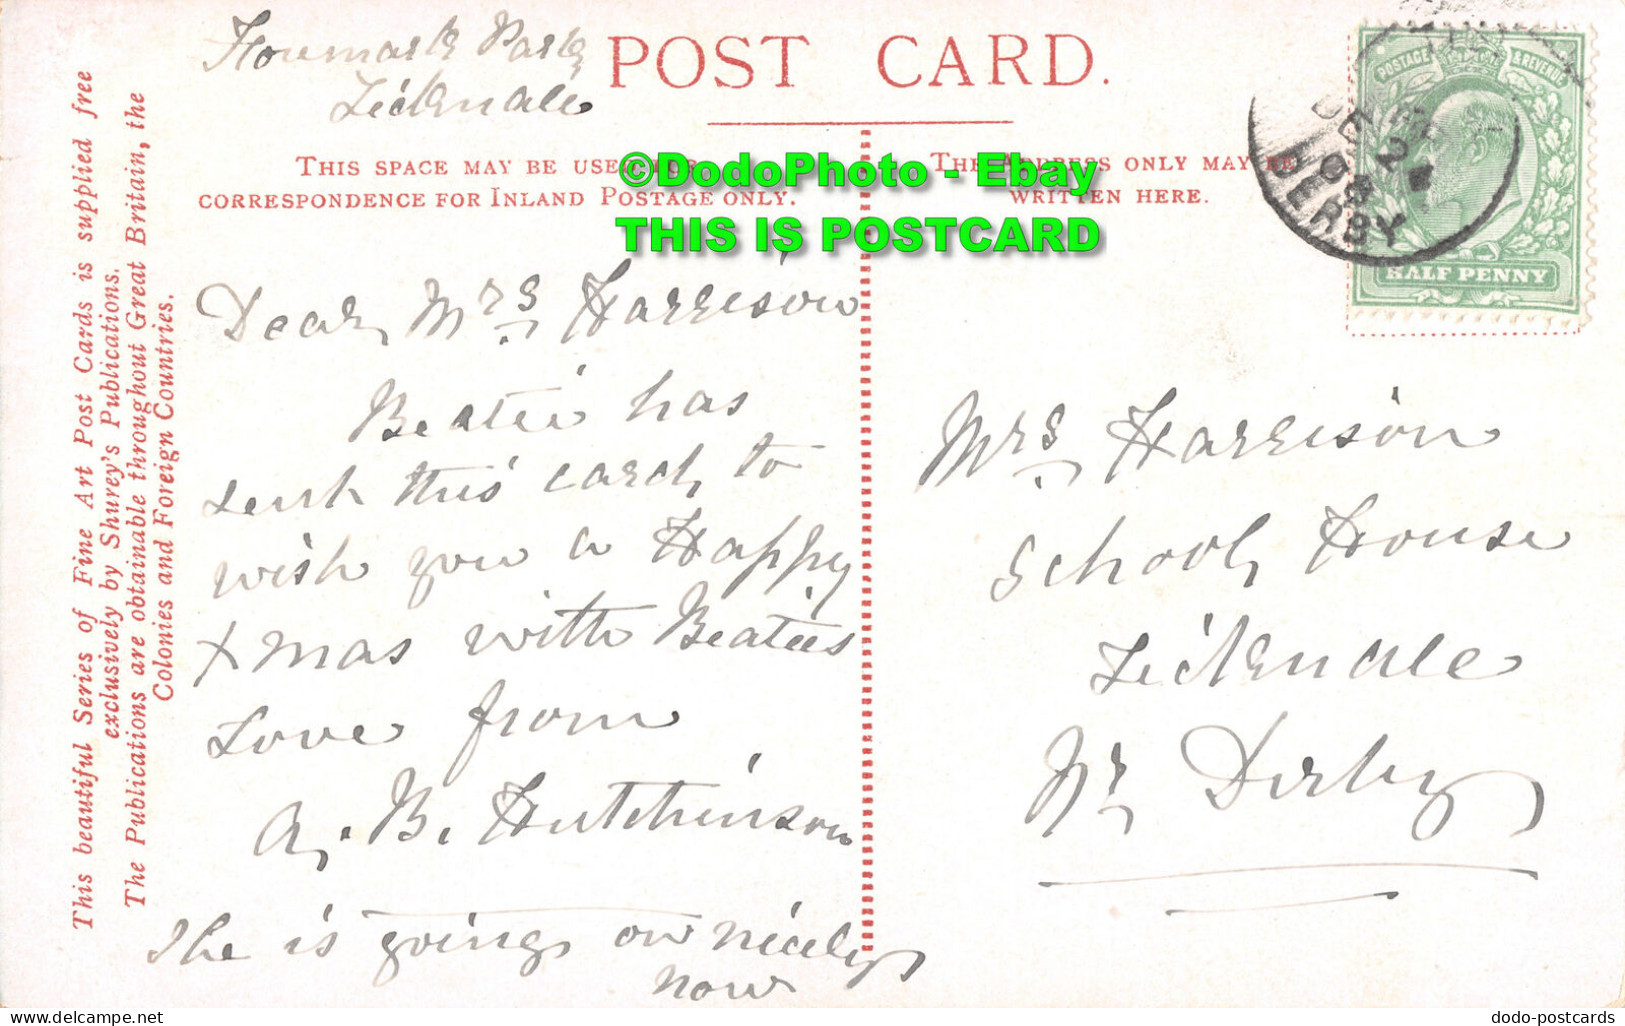 Park
POST CARD.
This beautiful Series of Fine Art Post Cards is supplied free
exclusively by Shurey's Publications.
The Publications are obtainable throughout Great Britain, the
Colonies and Foreign Countries.
THIS SPACE MAY BE USED FOR
CORRESPONDENCE FOR INLAND POSTAGE ONLY.
THE ADDRESS ONLY MAY BE
WRITTEN HERE.
©DodoPhoto - Ebay
THIS IS POSTCARD
POSTAGE & REVENUE
HALF PENNY
DERBY
DE 2
08
Dear Mrs Harrison
Beatie has
sent this card to
wish you a Happy
Xmas with Beaties
Love from
A. B. Hutchinson
She is going on nicely
now
Mrs Harrison
School House
Nr Derby
dodo-postcards